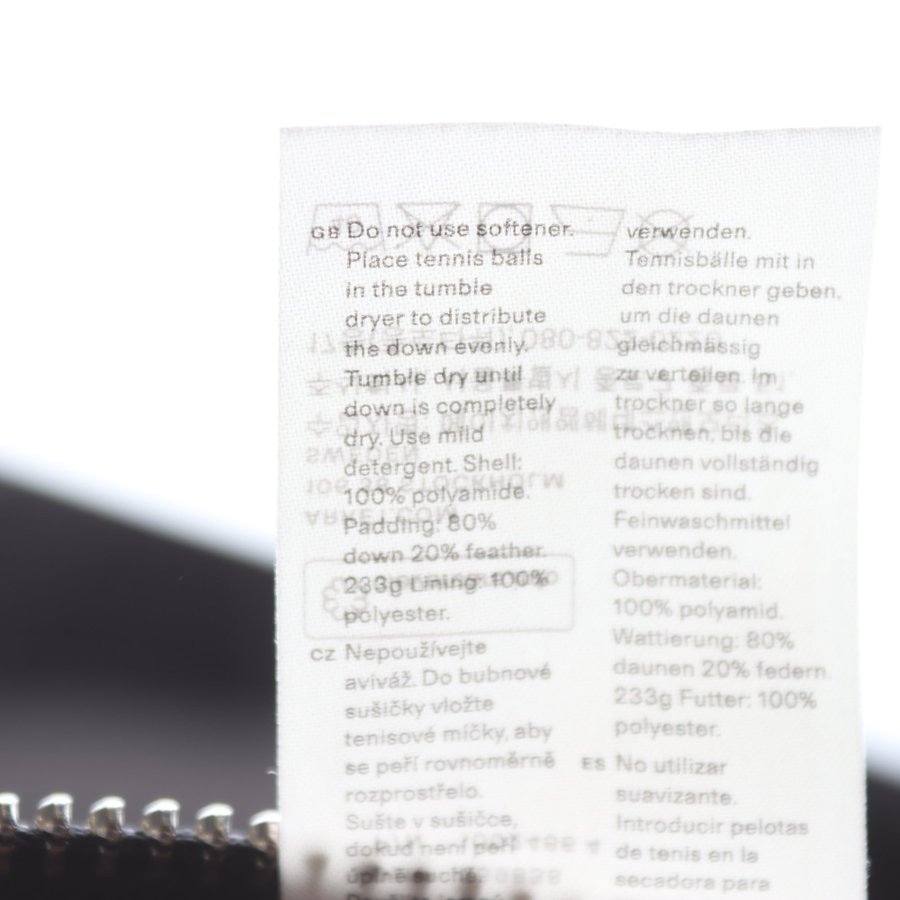 GB Do not use softener.
Place tennis balls
in the tumble
dryer to distribute
the down evenly.
Tumble dry until
down is completely
dry. Use mild
detergent. Shell:
100% polyamide.
Padding: 80%
down 20% feather.
233g Lining: 100%
polyester.
CZ Nepoužívejte
aviváž. Do bubnové
sušičky vložte
tenisové míčky, aby
se peří rovnoměrně
rozprostřelo.
Sušte v sušičce,
dokud není peří
úplně suché.
verwenden.
Tennisbälle mit in
den trockner geben,
um die daunen
gleichmässig
zu verteilen. Im
trockner so lange
trocknen, bis die
daunen vollständig
trocken sind.
Feinwaschmittel
verwenden.
Obermaterial:
100% polyamid.
Wattierung: 80%
daunen 20% federn.
233g Futter: 100%
polyester.
ES No utilizar
suavizante.
Introducir pelotas
de tenis en la
secadora para
SWEDEN
106 38 STOCKHOLM
ARKET.COM